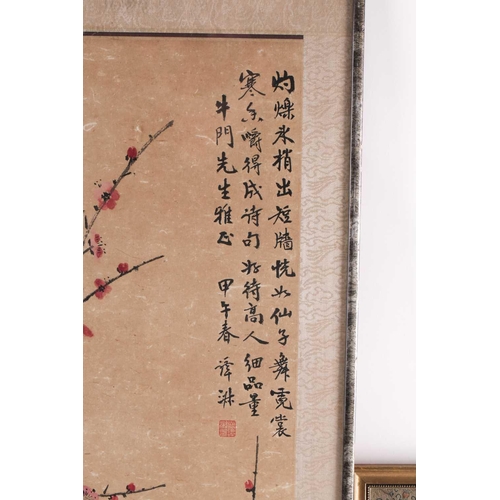 灼爍冰梢出短牆恍如仙子舞霓裳
寒香嚼得成诗句好待高人细品量
牛門先生雅正 甲午春 译淋